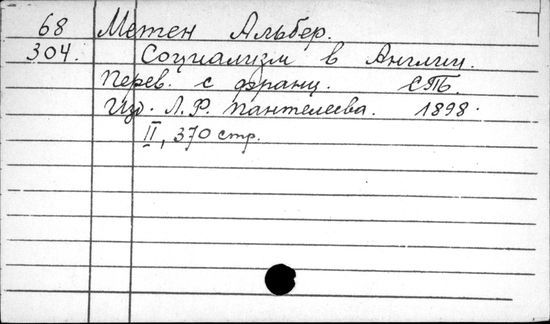 68 Метен Альбер.
304. Социализм в Англии.
Перев. с франц. СПБ.
Изд. Л.Р. Пантелеева. 1898.
II, 370 стр.